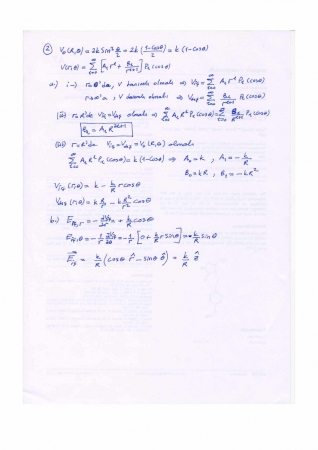 ② V₀(R,θ) = 2k Sin² θ/2 = 2k (1-Cosθ)/2 = k (1-Cosθ)
V(r,θ) = ∑_{ℓ=0}^{∞} [A_ℓ r^ℓ + B_ℓ/r^{ℓ+1}] P_ℓ (cosθ)
a.) i-) r=0'da, V sonlu olmalı ⇒ V_iç = ∑_{ℓ=0}^{∞} A_ℓ r^ℓ P_ℓ (cosθ)
r→∞'a, V olmalı ⇒ V_dış = ∑_{ℓ=0}^{∞} B_ℓ/r^{ℓ+1} P_ℓ (cosθ)
(ii) r=R'de V_iç = V_dış olmalı ⇒ ∑_{ℓ=0}^{∞} A_ℓ R^ℓ P_ℓ (cosθ) = ∑_{ℓ=0}^{∞} B_ℓ/R^{ℓ+1} P_ℓ (cosθ)
B_ℓ = A_ℓ R^{2ℓ+1}
(iii) r=R'de V_iç = V_dış = V₀(R,θ) olmalı
∑_{ℓ=0}^{∞} A_ℓ R^ℓ P_ℓ (cosθ) = k (1-Cosθ) ⇒ A₀ = k , A₁ = -k/R
B₀ = kR , B₁ = -kR²
V_iç (r,θ) = k - k/R r cosθ
V_dış (r,θ) = k R/r - k R²/r² cosθ
b.) E_iç,r = - ∂V_iç/∂r = + k/R cosθ
E_iç,θ = - 1/r ∂V_iç/∂θ = - 1/r [0 + k/R r Sinθ] = - k/R Sinθ
E_iç = k/R (cosθ r̂ - sinθ θ̂) = k/R ẑ